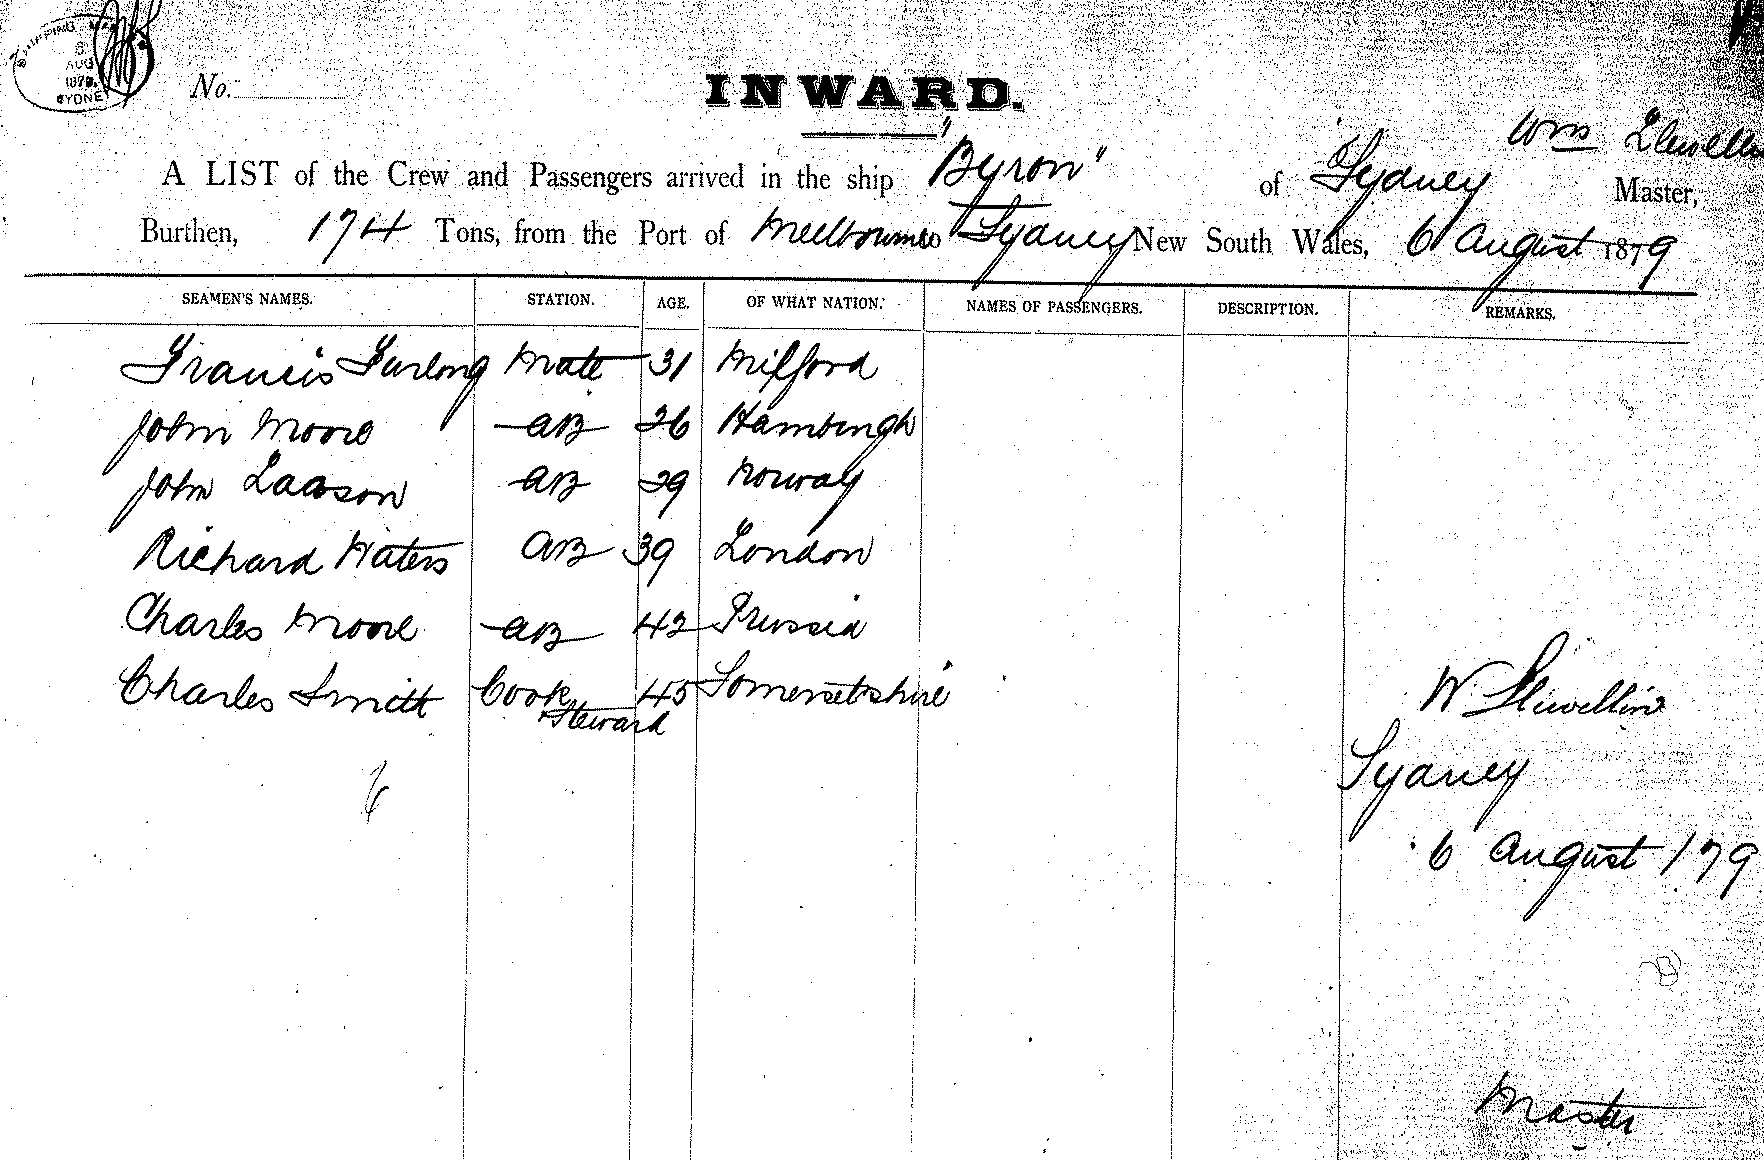 SHIPPING
6
AUG
1879
SYDNEY
No.
INWARD.
Wm Llewellin
A LIST of the Crew and Passengers arrived in the ship "Byron" of Sydney Master,
Burthen, 174 Tons, from the Port of Melbourne to Sydney New South Wales, 6 August 1879
SEAMEN'S NAMES. STATION. AGE. OF WHAT NATION. NAMES OF PASSENGERS. DESCRIPTION. REMARKS.
Francis Furlong Mate 31 Milford
John Moore AB 26 Hamburgh
John Laason AB 29 Norway
Richard Waters AB 39 London
Charles Moore AB 42 Prussia
Charles Smith Cook 45 Somersetshire
+ Steward
W Llewellin
Sydney
6
6 August /79
Master